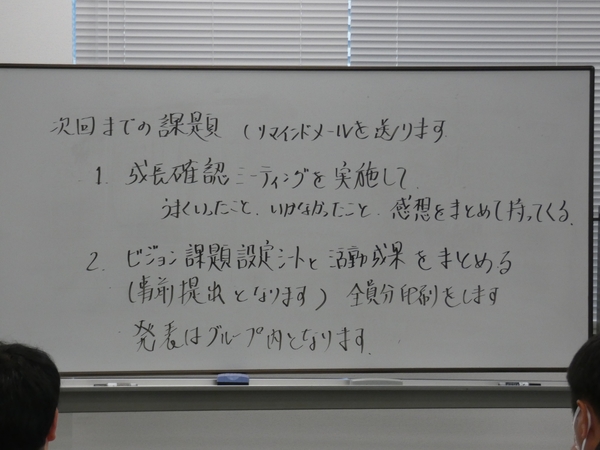 次回までの課題 (リマインドメールを送ります
1. 成長確認ミーティングを実施して
うまくいったこと、いかなかったこと、感想をまとめて持ってくる。
2. ビジョン課題設定シートと活動成果をまとめる
(事前提出となります) 全員分印刷をします
発表はグループ内となります。